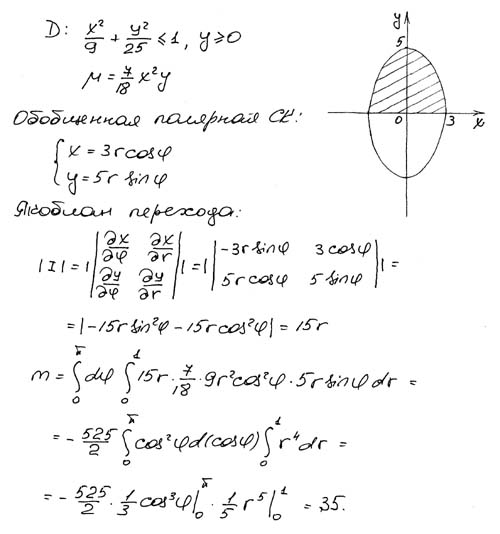 D: x²/9 + y²/25 ≤ 1, y ≥ 0
μ = 7/18 x²y
y
5
0
3
x
Обобщенная полярная СК:
{ x = 3r cosφ
y = 5r sinφ
Якобиан перехода:
|I| = | |∂x/∂φ ∂x/∂r; ∂y/∂φ ∂y/∂r| | = | |-3r sinφ 3 cosφ; 5r cosφ 5 sinφ| | =
= |-15r sin²φ - 15r cos²φ| = 15r
m = ∫₀^π dφ ∫₀^1 15r · 7/18 · 9r² cos²φ · 5r sinφ dr =
= - 525/2 ∫₀^π cos²φ d(cosφ) ∫₀^1 r⁴ dr =
= - 525/2 · 1/3 cos³φ |₀^π · 1/5 r⁵ |₀^1 = 35.